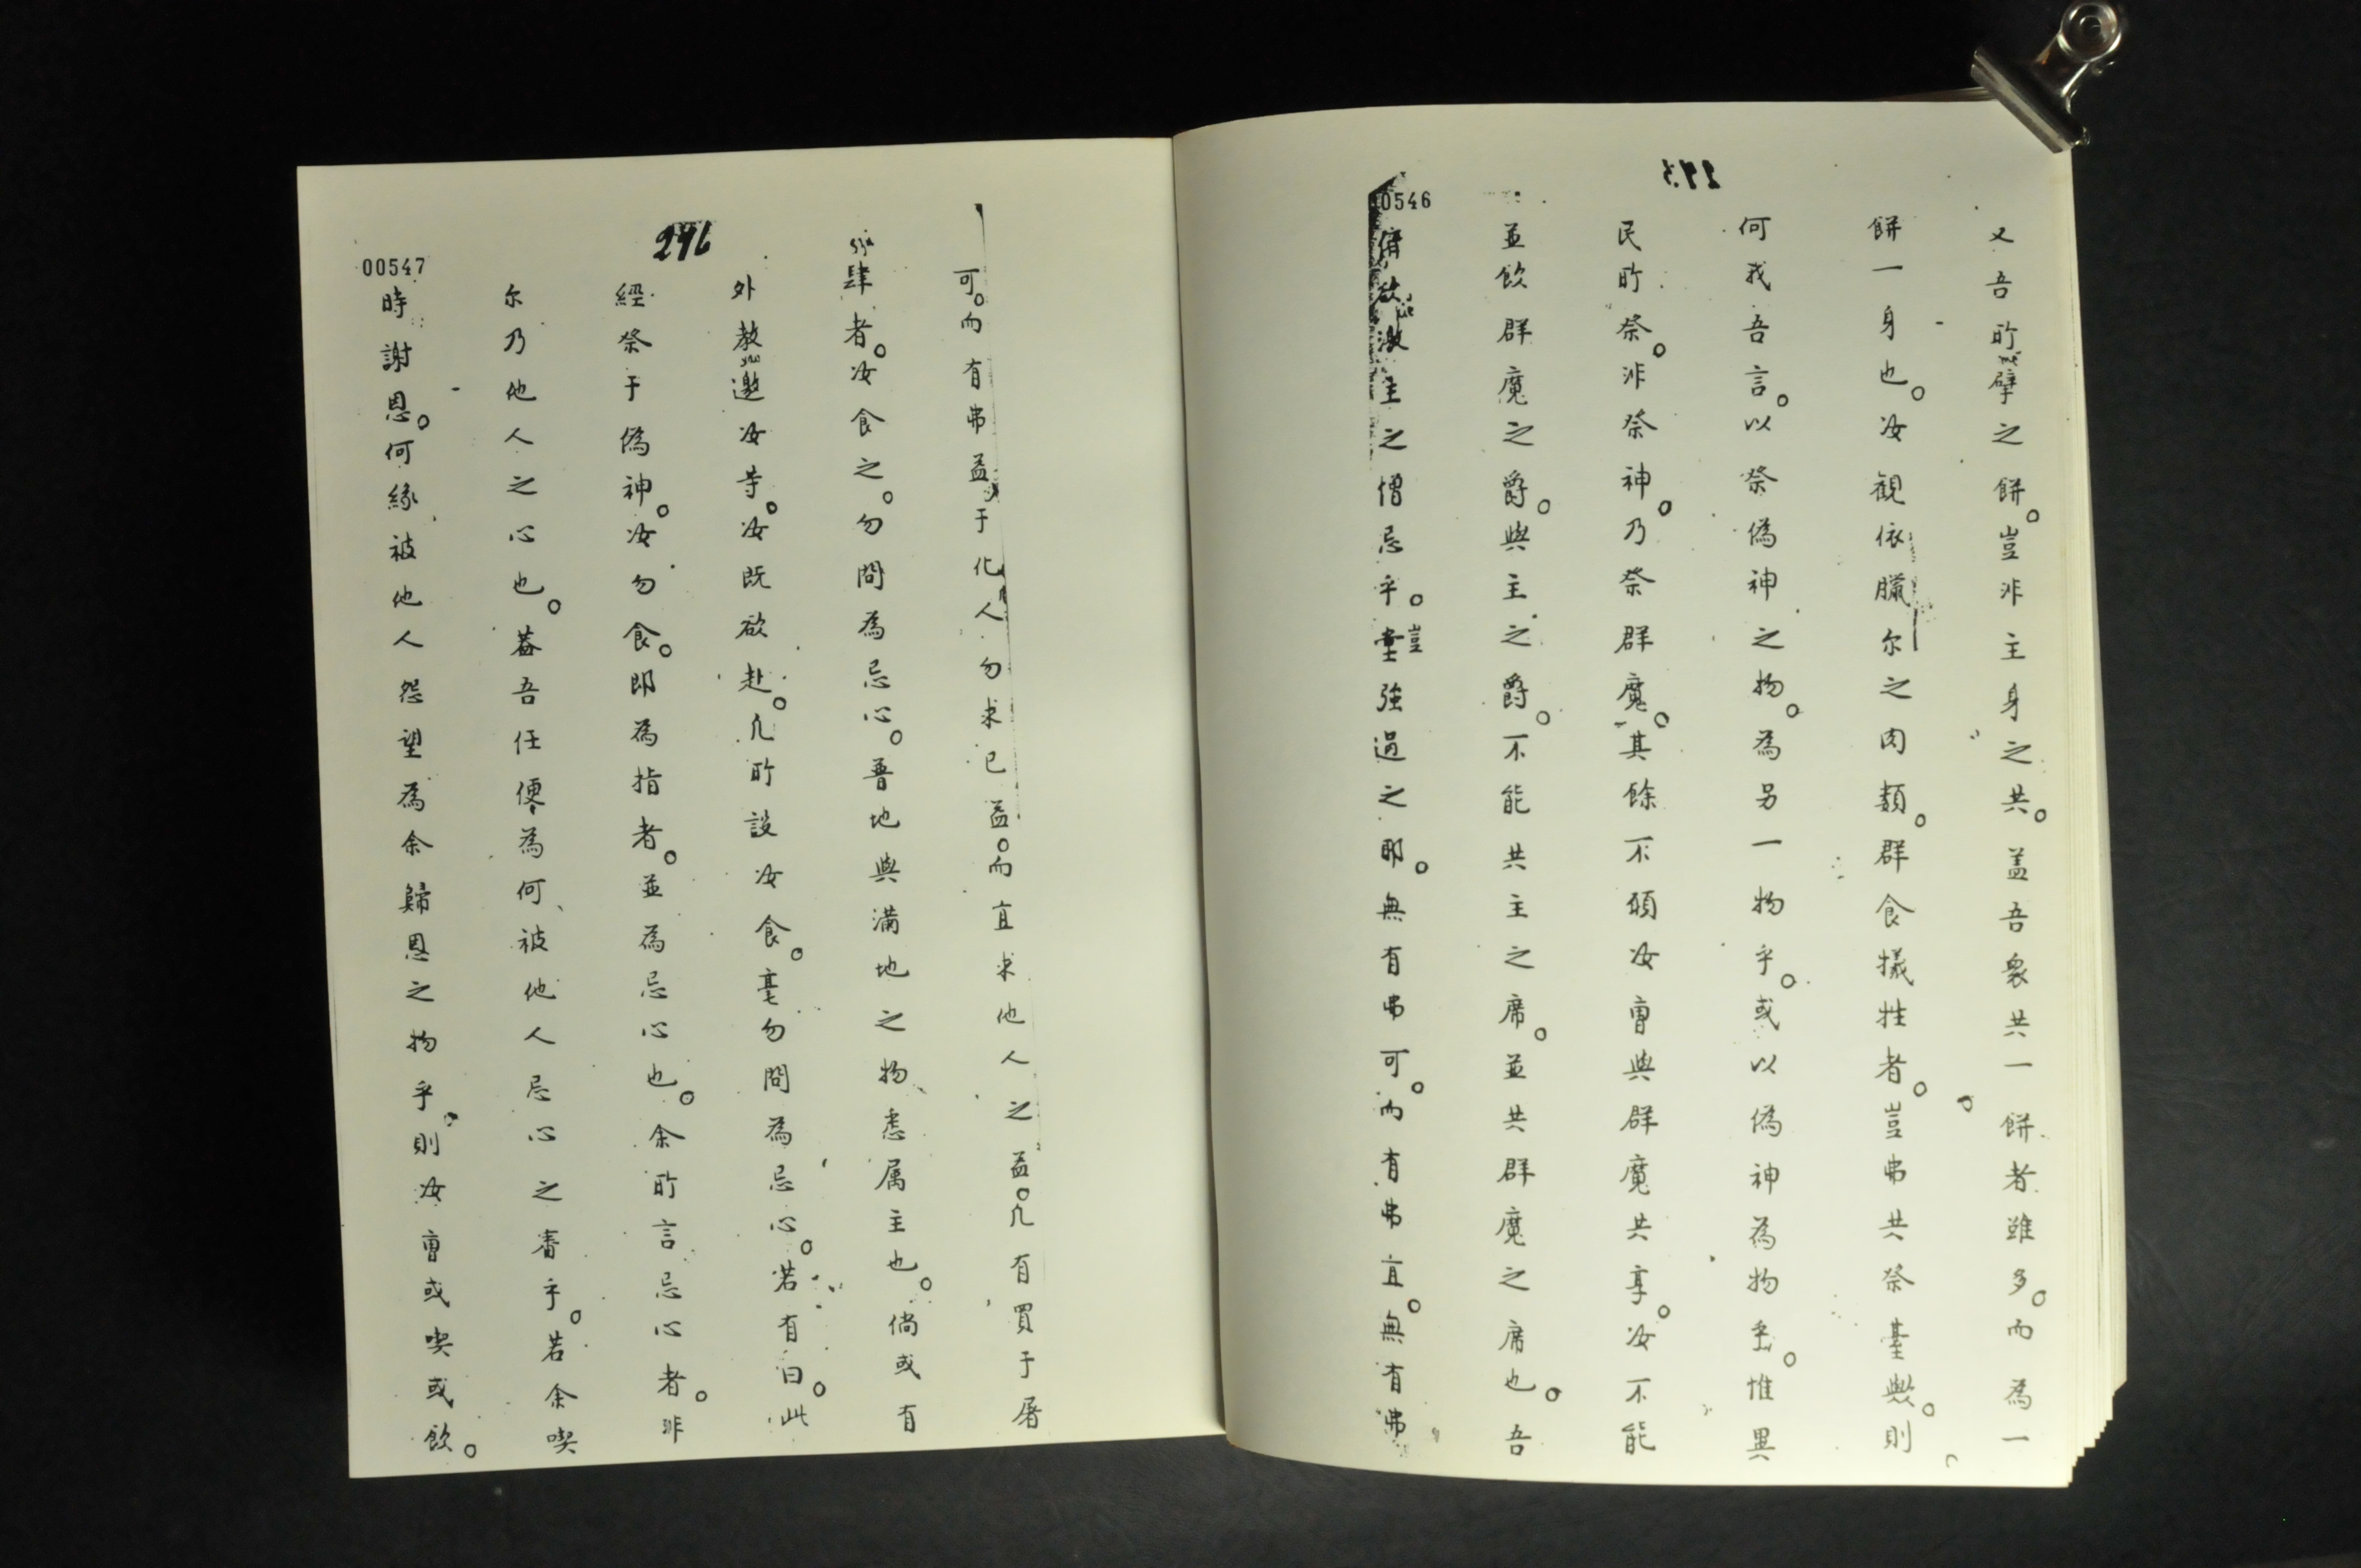 295
又吾所擘之餅。豈非主身之共。盖吾衆共一餅者雖多。而為一
餅一身也。汝観依臘尓之肉類。群食犠牲者。豈弗共祭臺歟。則
何我吾言。以祭偽神之物。為另一物乎。或以偽神為物乎。惟異
民所祭。非祭神。乃祭群魔。其餘不願汝曹與群魔共享。汝不能
並飲群魔之爵。與主之爵。不能共主之席。並共群魔之席也。吾
儕欲激主之憎忌乎。豈強過之耶。無有弗可。而有弗宜。無有弗
0546
296
可。而有弗益于化人勿求已益。而宜求他人之益。凢有買于屠
肆者。汝食之。勿問為忌心。普地與滿地之物悉属主也。倘或有
外教邀汝等。汝既欲赴。凢所設汝食。毫勿問為忌心。若有曰。此
經祭于偽神。汝勿食。即為指者。並為忌心也。余所言忌心者。非
尓乃他人之心也。蓋吾任便為何被他人忌心之審乎。若余喫
時謝恩。何緣被他人怨望為余歸恩之物乎。則汝曹或喫或飲。
00547